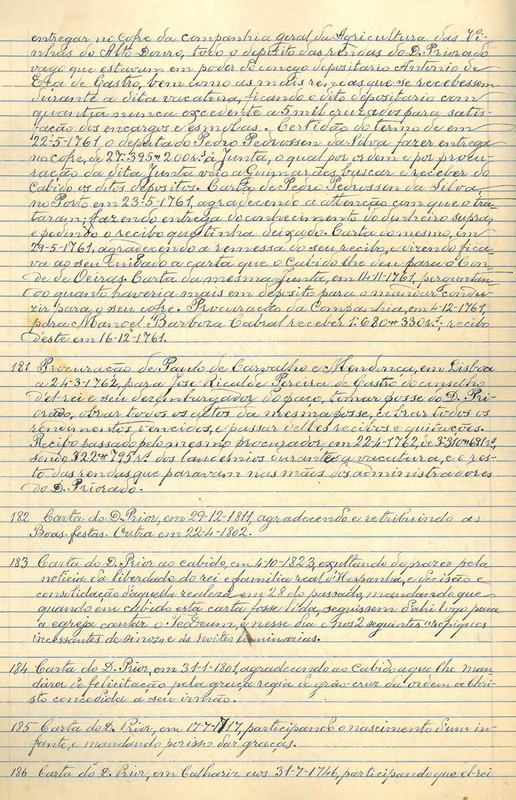 entregar no cofre da companhia geral da Agricultura das Vi-
nhas do Alto Douro, todo o deposito das rendas do D. Priorado
vago que estavam em poder do conego depositario Antonio de
Eça de Castro, bem como as mais rendas que se recebessem
durante a dita vacatura, ficando o dito depositario com
quantia nunca excedente a 5 mil cruzados para satis-
fação dos encargos e esmolas. Certidão do termo de em
22-5-1761 o deputado Pedro Pedrossem da Silva fazer entrega
no cofre, de 27:395#200 rs. à Junta, o qual por ordem e por procu-
ração da dita Junta veio a Guimarães buscar e receber do
Cabido os ditos depositos. Carta de Pedro Pedrossem da Silva,
no Porto em 23-5-1761, agradecendo a attenção com que o tra-
taram; fazendo entrega do conhecimento do dinheiro supra,
e pedindo o recibo que tinha deixado. Carta do mesmo, em
29-5-1761, agradecendo a remessa do seu recibo, e dizendo fica-
va ao seu cuidado a carta que o Cabido lhe deu para o Con-
de de Oeiras. Carta da mesma Junta, em 14-11-1761, perguntan-
do quanto haveria mais em deposito para o mandar condu-
zir para o seu cofre. Procuração da Companhia, em 4-12-1761,
para Manoel Barboza Cabral receber 1:680#330 rs.; recibo
deste em 16-12-1761.
181 Procuração de Paulo de Carvalho e Mendonça, em Lisboa
a 24-3-1762, para José Ricalde Pereira de Castro do conselho
d'el-rei e seu dezembargador do paço, tomar posse do D. Pri-
orado, obrar todos os actos da mesma posse, cobrar todos os
rendimentos vencidos, e passar delles recibos e quitações.
Recibo passado pelo mesmo procurador, em 22-4-1762, de 3:310#681 rs.,
sendo 322#795 rs. dos laudemios durante a vacatura, e o res-
to das rendas que paravam nas mãos dos administradores
do D. Priorado.
182 Carta do D. Prior, em 29-12-1811, agradecendo e retribuindo as
Boas-festas. Outra em 22-4-1802.
183 Carta do D. Prior ao cabido, em 4-10-1823, exultando de prazer pela
noticia da liberdade do rei e familia real d'Hespanha, e decisão e
consolidação d'aquella realeza, em 28 do passado, mandando que
quando em cabido esta carta fosse lida, seguissem d'ahi logo para
a egreja cantar o TeDeum, e nesse dia e nos 2 seguintes repiques
incessantes de sinos e ás noites luminarias.
184 Carta do D. Prior, em 31-1-1801, agradecendo ao Cabido a que lhe man-
dára de felicitação pela graça regia de grão-cruz da ordem de Chri-
sto concedida a seu irmão.
185 Carta do D. Prior, em 17-7-1717, participando o nascimento d'um in-
fante, e mandando por isso dar graças.
186 Carta do D. Prior, em Calhariz aos 31-7-1746, participando que el-rei